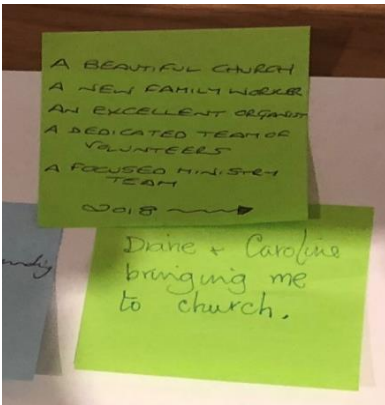 A BEAUTIFUL CHURCH
A NEW FAMILY WORKER
AN EXCELLENT ORGANIST
A DEDICATED TEAM OF
VOLUNTEERS
A FOCUSED MINISTRY
TEAM
2018
Diane + Caroline
bringing me
to church.